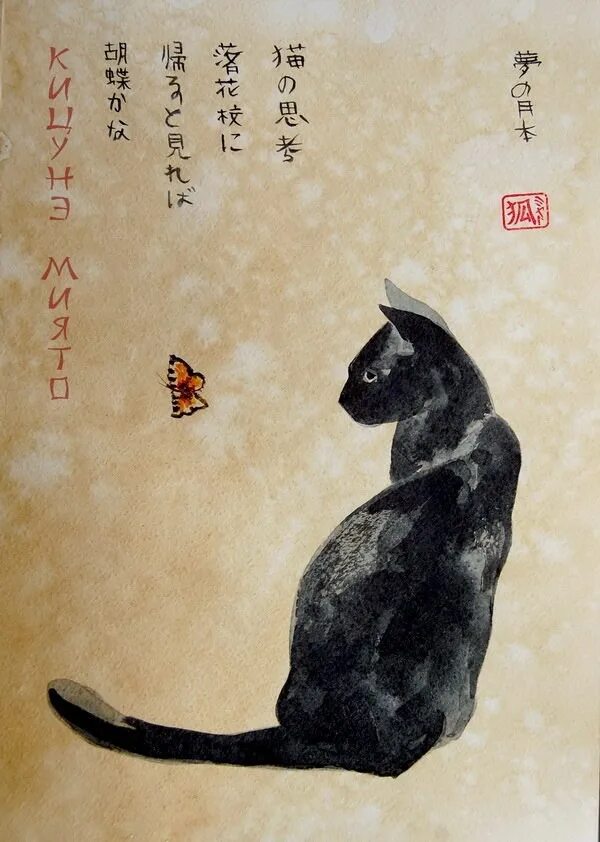 夢の月本
狐
猫の思考
落花校に
帰ると見れば
胡蝶かな
КИЦУНЭ МИЯТО